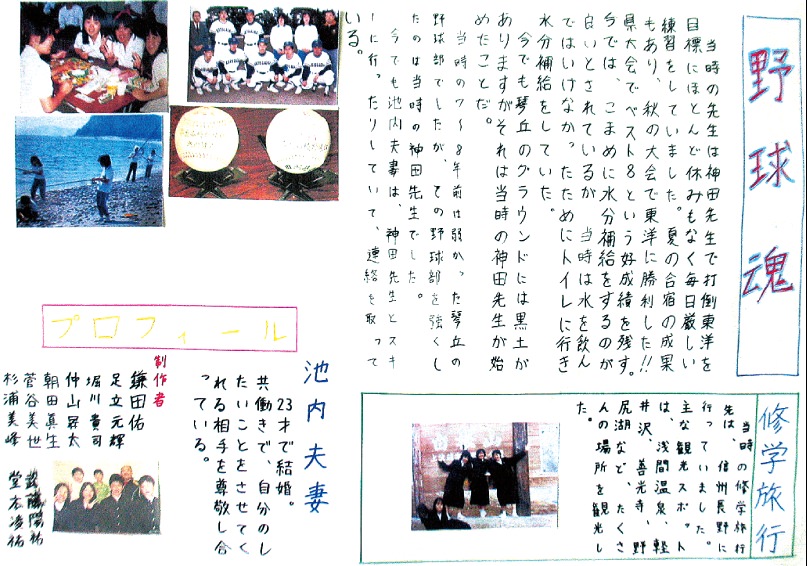 野球魂
当時の先生は神田先生で打倒東洋を
目標にほとんど休みもなく毎日厳しい
練習をしていました。夏の合宿の成果
もあり、秋の大会で東洋に勝利した!!
県大会でベスト8という好成績を残す。
今では、こまめに水分補給をするのが
良いとされているが、当時は水を飲ん
ではいけなかったためにトイレに行き
水分補給をしていた。
今でも琴丘のグラウンドには黒土が
ありますがそれは当時の神田先生が始
めたことだ。
当時の7〜8年前は弱かった琴丘の
野球部でしたが、その野球部を強くし
たのは当時の神田先生でした。
今でも池内夫妻は、神田先生とスキ
ーに行ったりしていて、連絡を取って
いる。
修学旅行
当時の修学旅行
先は、信州長野に
行っていました。
主な観光スポット
は、浅間温泉、軽
井沢、善光寺、野
尻湖など、たくさ
んの場所を観光し
た。
プロフィール
池内夫妻
23才で結婚。
共働きで、自分のし
たいことをさせてく
れる相手を尊敬し合
っている。
制作者
鎌田佑
足立元輝
堀川貴司
仲山昇太
朝田真生
菅谷美世
杉浦美峰
武藤陽祐
堂本凌祐